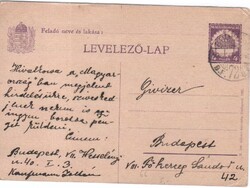 Feladó neve és lakása:
LEVELEZŐ-LAP
Hivatkozva a Magyar-
országban megjelent
hirdetésükre,
nek nekem is egy
ingyen borotva pen-
gét küldeni.
Címem:
Budapest, VII. Wesselényi
u. 40. I. 3.
Kaufmann Zoltán
Budapest
VIII. Főherceg Sándor u.
42